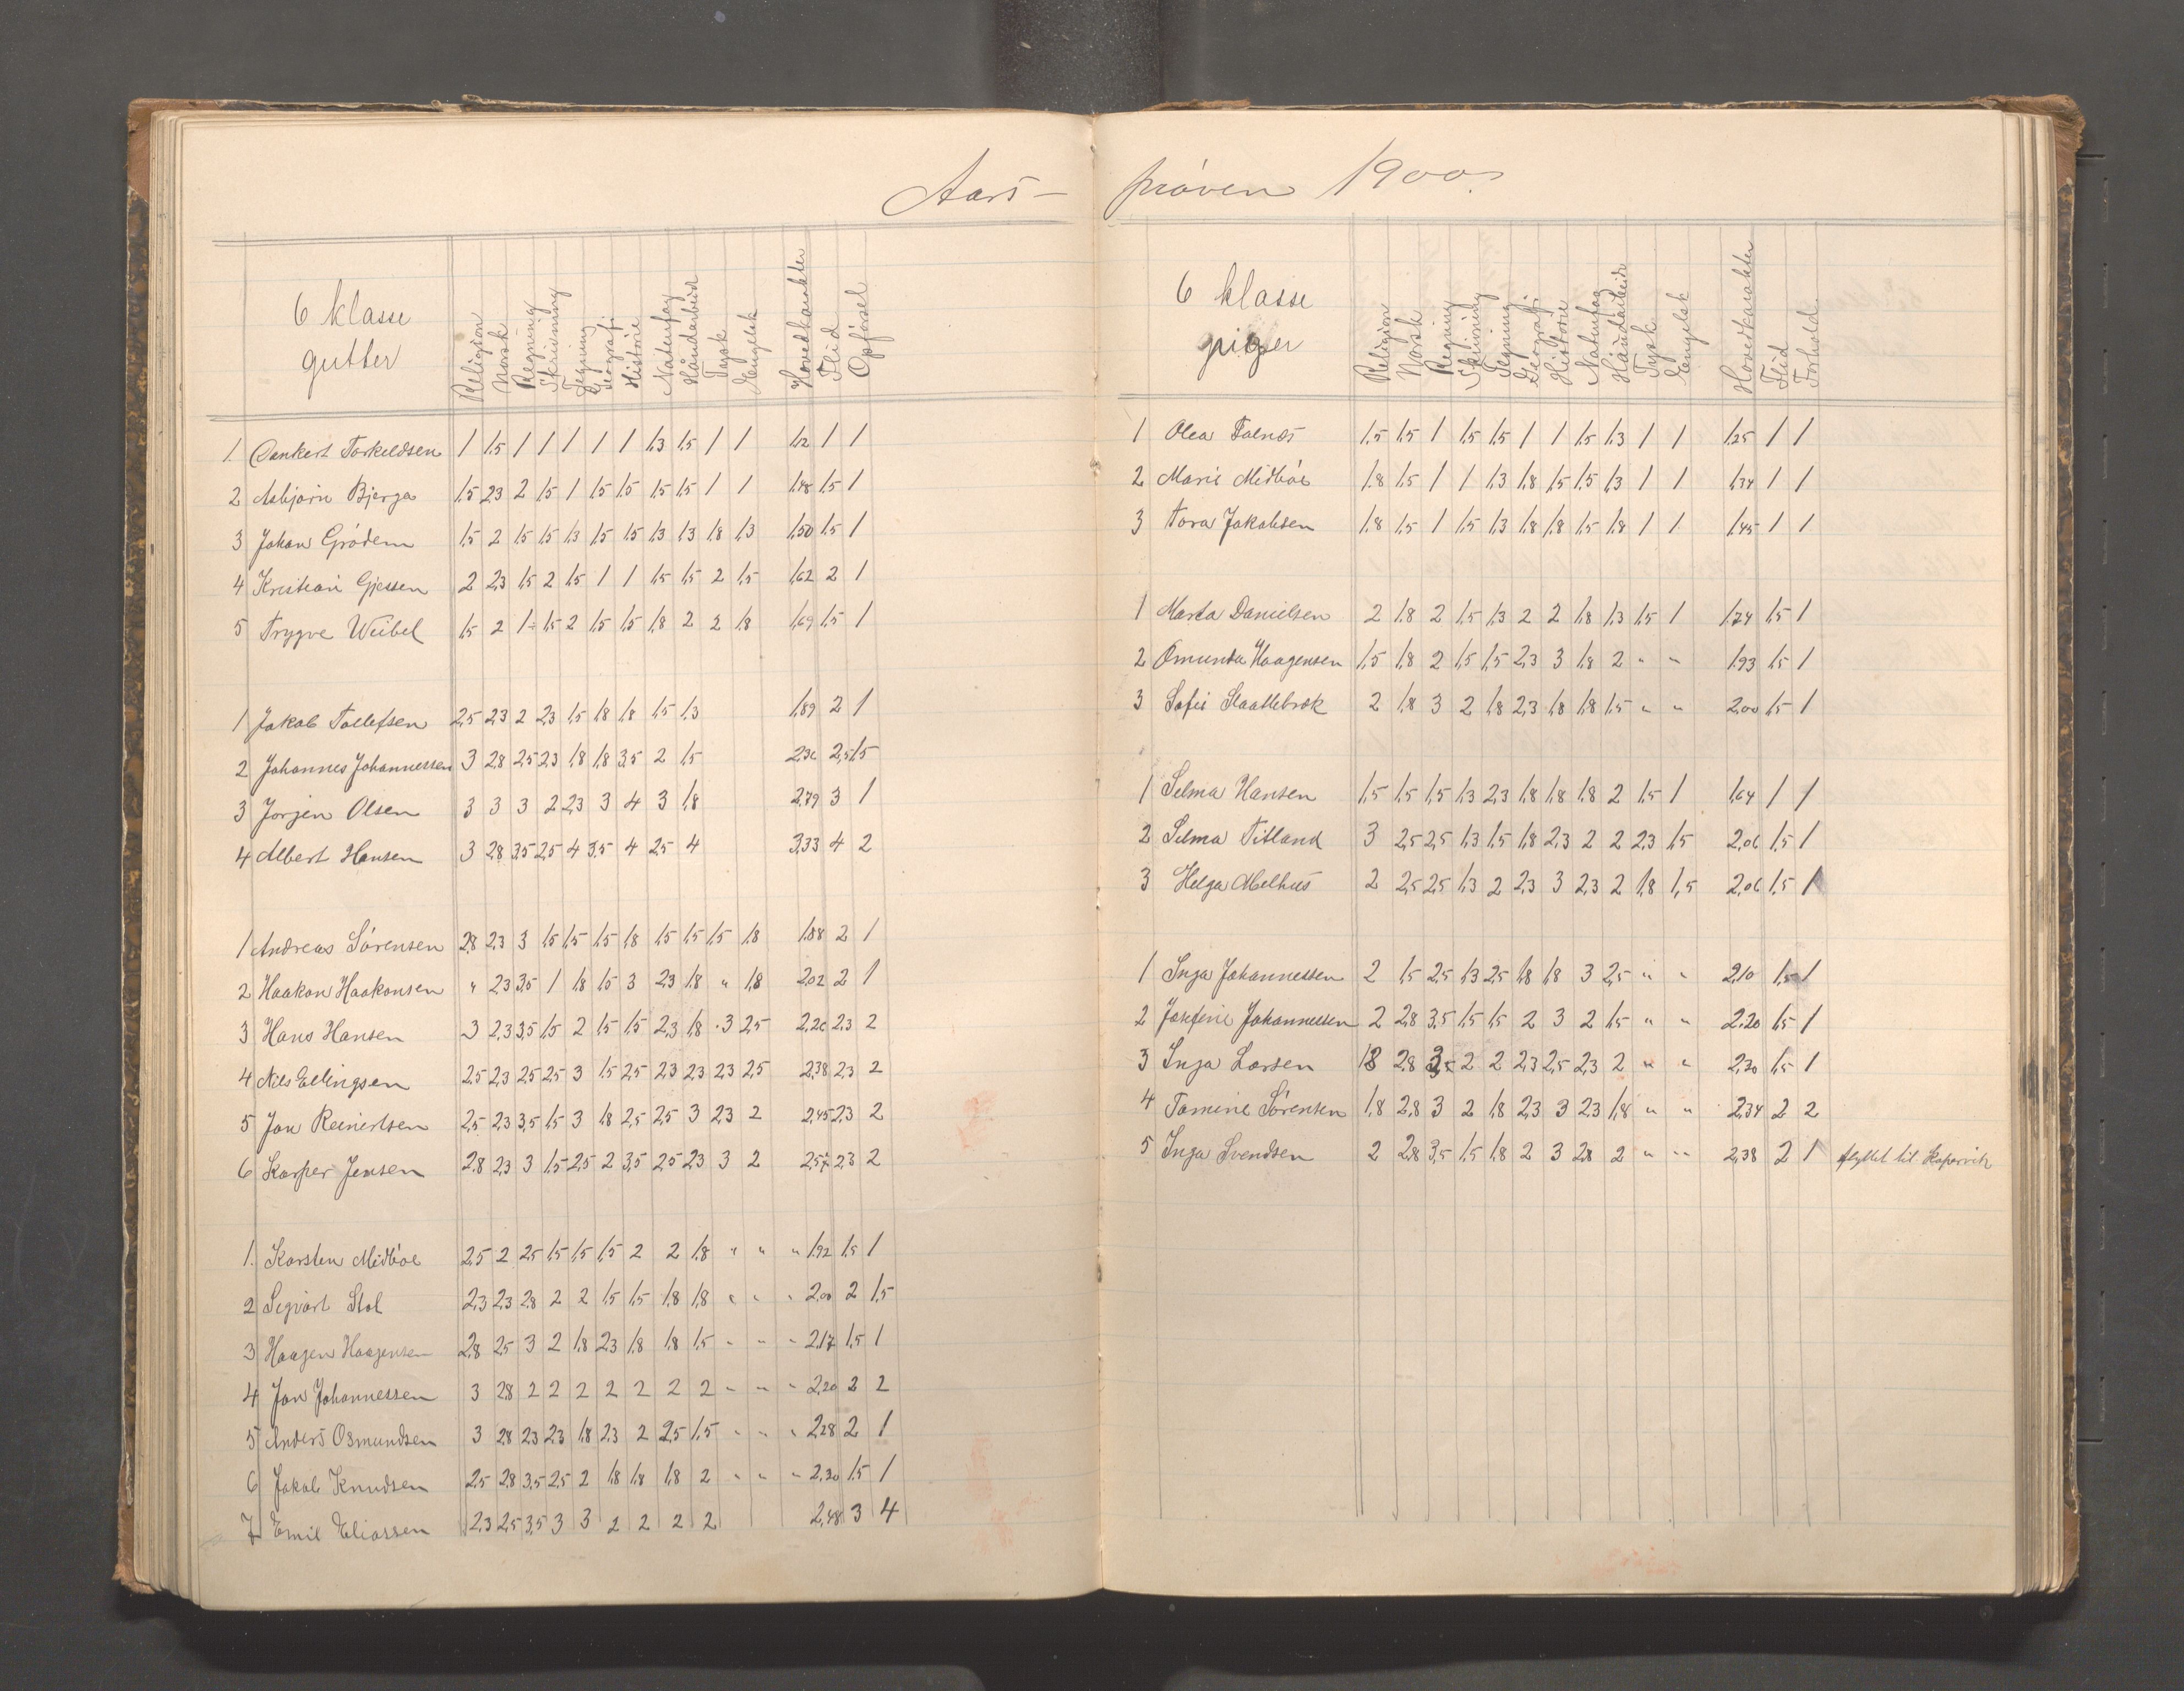 Aars-
6 klasse
gutter
Religion Norsk Regning Skrivning Tegning Geografi. Historie Naturfag Håndarbeid Tysk Engelsk Hovedkarakter Flid Opförsel
1 Torkeldsen 1 1,5 1 1 1 1 1 1,3 1,5 1 1 1,12 1 1
2 Asbjørn Bjerga 1,5 2,3 2 1,5 1 1,5 1,5 1,5 1,5 1 1 1,48 1,5 1
3 Johan Grödem 1,5 2 1,5 1,5 1,3 1,5 1,5 1,3 1,3 1,8 1,3 1,50 1,5 1
4 Kristian Gjessen 2 2,3 1,5 2 1,5 1 1 1,5 1,5 2 1,5 1,62 2 1
5 Trygve Weibel 1,5 2 1 1,5 2 1,5 1,5 1,8 2 2 1,8 1,69 1,5 1
1 Jakob Tollefsen 2,5 2,3 2 2,3 1,5 1,8 1,8 1,5 1,3 1,89 2 1
2 Johannes Johannessen 3 2,8 2,5 2,3 1,8 1,8 3,5 2 1,5 2,36 2,5 1,5
3 Jörjen Olsen 3 3 3 2 2,3 3 4 3 1,8 2,79 3 1
4 Albert Hansen 3 2,8 3,5 2,5 4 3,5 4 2,5 4 3,33 4 2
1 Andreas Sörensen 2,8 2,3 3 1,5 1,5 1,5 1,8 1,5 1,5 1,5 1,8 1,88 2 1
2 Haakon Haakonsen " 2,3 3,5 1 1,8 1,5 3 2,3 1,8 " 1,8 2,02 2 1
3 Hans Hansen 3 2,3 3,5 1,5 2 1,5 1,5 2,3 1,8 3 2,5 2,26 2,3 2
4 Nils Ellingsen 2,5 2,3 2,5 2,5 3 1,5 2,5 2,3 2,3 2,3 2,5 2,38 2,3 2
5 Jon Reinertsen 2,5 2,3 3,5 1,5 3 1,8 2,5 2,5 3 2,3 2 2,45 2,3 2
6 Kasper Jensen 2,8 2,3 3 1,5 2,5 2 3,5 2,5 2,3 3 2 2,57 2,3 2
1. Karsten Midböe 2,5 2 2,5 1,5 1,5 1,5 2 2 1,8 " " " 1,92 1,5 1
2 Sigvart Stol 2,3 2,3 2,8 2 2 1,5 1,5 1,8 1,8 " " " 2,00 2 1,5
3 Haagen Haagensen 2,8 2,5 3 2 1,8 2,3 1,8 1,8 1,5 " " " 2,17 1,5 1
4 Jon Johannessen 3 2,8 2 2 2 2 2 2 2 " " " 2,20 2 2
5 Anders Osmundsen 3 2,8 2,3 2,3 1,8 2,3 2 2,5 1,5 " " " 2,28 2 1
6 Jakob Knudsen 2,5 2,8 3,5 2,5 2 1,8 1,8 1,8 2 " " " 2,30 1,5 1
7 Emil Eliassen 2,3 2,5 3,5 3 3 2 2 2 2 2,48 3 4
pröven 1900.
6 klasse
piger
Religion Norsk Regning Skrivning Tegning Geografi. Historie Naturfag Håndarbeide Tysk Engelsk Hovedkarakter Flid Forhold
1 Olea Falnes 1,5 1,5 1 1,5 1,5 1 1 1,5 1,3 1 1 1,25 1 1
2 Marie Midböe 1,8 1,5 1 1 1,3 1,8 1,5 1,5 1,3 1 1 1,34 1 1
3 Tora Jakobsen 1,8 1,5 1 1,5 1,3 1,8 1,8 1,5 1,8 1 1 1,45 1 1
1 Marta Danielsen 2 1,8 2 1,5 1,3 2 2 1,8 1,3 1,5 1 1,74 1,5 1
2 Omunda Haagensen 1,5 1,8 2 1,5 1,5 2,3 3 1,8 2 " " 1,93 1,5 1
3 Sofie Slaattebrok 2 1,8 3 2 1,8 2,3 1,8 1,8 1,5 " " 2,00 1,5 1
1 Selma Hansen 1,5 1,5 1,5 1,3 2,3 1,8 1,8 1,8 2 1,5 1 1,64 1 1
2 Selma Titland 3 2,5 2,5 1,3 1,5 1,8 2,3 2 2 2,3 1,5 2,06 1,5 1
3 Helga Melhus 2 2,5 2,5 1,3 2 2,3 3 2,3 2 1,8 1,5 2,06 1,5 1
1 Inga Johannessen 2 1,5 2,5 1,3 2,5 1,8 1,8 3 2,5 " " 2,10 1,5 1
2 Josefine Johannessen 2 2,8 3,5 1,5 1,5 2 3 2 1,5 " " 2,20 1,5 1
3 Inga Larsen 1,8 2,8 3,5 2 2 2,3 2,5 2,3 2 " " 2,30 1,5 1
4 Tomine Sörensen 1,8 2,8 3 2 1,8 2,3 3 2,3 1,8 " " 2,34 2 2
5 Inga Svendsen 2 2,8 3,5 1,5 1,8 2 3 2,8 2 " " 2,38 2 1 flyttet til Kopervik